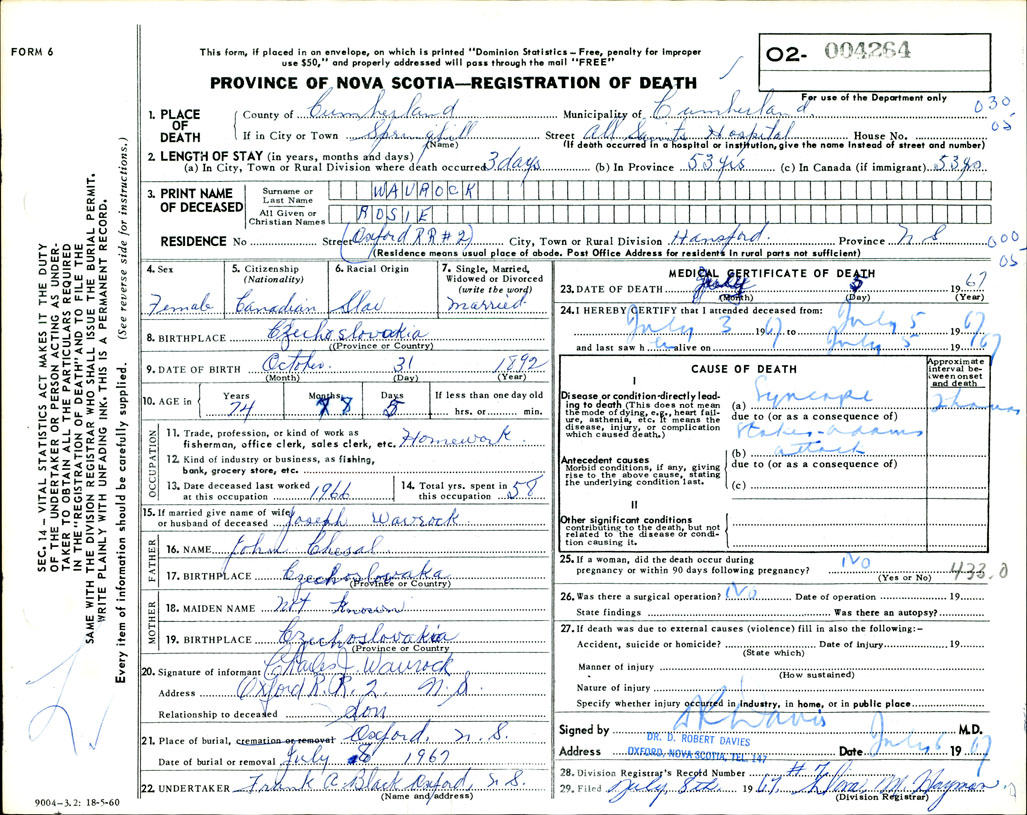 FORM 6
This form, if placed in an envelope, on which is printed "Dominion Statistics – Free, penalty for improper
use $50," and properly addressed will pass through the mail "FREE"
O2- 004264
PROVINCE OF NOVA SCOTIA—REGISTRATION OF DEATH
For use of the Department only
1. PLACE OF DEATH
County of Cumberland Municipality of Cumberland 030
If in City or Town Springhill (Name) Street All Saints Hospital House No. 05
(If death occurred in a hospital or institution, give the name instead of street and number)
2. LENGTH OF STAY (in years, months and days)
(a) In City, Town or Rural Division where death occurred 3 days (b) In Province 53 yrs (c) In Canada (if immigrant) 53 yrs
3. PRINT NAME OF DECEASED
Surname or Last Name WAVROCK
All Given or Christian Names ROSIE
RESIDENCE No Street (Oxford RR #2) City, Town or Rural Division Hansford. Province N S 000
(Residence means usual place of abode. Post Office Address for residents in rural parts not sufficient) 05
4. Sex Female
5. Citizenship (Nationality) Canadian
6. Racial Origin Slav
7. Single, Married, Widowed or Divorced (write the word) Married
8. BIRTHPLACE Czechoslovakia
(Province or Country)
9. DATE OF BIRTH October 31 1892
(Month) (Day) (Year)
10. AGE in Years 74 Months 8 Days 5 If less than one day old hrs. or min.
OCCUPATION
11. Trade, profession, or kind of work as fisherman, office clerk, sales clerk, etc. Homework
12. Kind of industry or business, as fishing, bank, grocery store, etc.
13. Date deceased last worked at this occupation 1966
14. Total yrs. spent in this occupation 58
15. If married give name of wife or husband of deceased Joseph Wavrock
FATHER
16. NAME John Chesal
17. BIRTHPLACE Czechoslowaka
(Province or Country)
MOTHER
18. MAIDEN NAME Not Known
19. BIRTHPLACE Czechoslovakia
(Province or Country)
20. Signature of informant Charles J. Wavrock
Address Oxford R.R. 2 N.S.
Relationship to deceased Son
21. Place of burial, cremation or removal Oxford, N.S.
Date of burial or removal July 8 1967
22. UNDERTAKER Frank A. Black Oxford, N.S.
(Name and address)
MEDICAL CERTIFICATE OF DEATH
23. DATE OF DEATH July 5 1967
(Month) (Day) (Year)
24. I HEREBY CERTIFY that I attended deceased from:
July 3 1967 to July 5 1967
and last saw her alive on July 5 1967
CAUSE OF DEATH
Approximate interval between onset and death
I
Disease or condition directly leading to death (This does not mean the mode of dying, e.g., heart failure, asthenia, etc. It means the disease, injury, or complication which caused death.)
(a) Syncope
due to (or as a consequence of)
Stokes-Adams
(b) attack
due to (or as a consequence of)
(c)
Antecedent causes
Morbid conditions, if any, giving rise to the above cause, stating the underlying condition last.
II
Other significant conditions
contributing to the death, but not related to the disease or condition causing it.
25. If a woman, did the death occur during pregnancy or within 90 days following pregnancy? No
(Yes or No) 433.0
26. Was there a surgical operation? No Date of operation 19
State findings Was there an autopsy?
27. If death was due to external causes (violence) fill in also the following:–
Accident, suicide or homicide? Date of injury 19
(State which)
Manner of injury
(How sustained)
Nature of injury
Specify whether injury occurred in industry, in home, or in public place
Signed by D R Davis M.D.
DR. D. ROBERT DAVIES
Address OXFORD, NOVA SCOTIA, TEL. 147 Date July 6 1967
28. Division Registrar's Record Number # 7
29. Filed July 8th 1967
(Division Registrar)
9004–3.2: 18-5-60
SEC. 14 – VITAL STATISTICS ACT MAKES IT THE DUTY
OF THE UNDERTAKER OR PERSON ACTING AS UNDER-
TAKER TO OBTAIN ALL THE PARTICULARS REQUIRED
IN THE "REGISTRATION OF DEATH" AND TO FILE THE
SAME WITH THE DIVISION REGISTRAR WHO SHALL ISSUE THE BURIAL PERMIT.
WRITE PLAINLY WITH UNFADING INK. THIS IS A PERMANENT RECORD.
Every item of information should be carefully supplied. (See reverse side for instructions.)